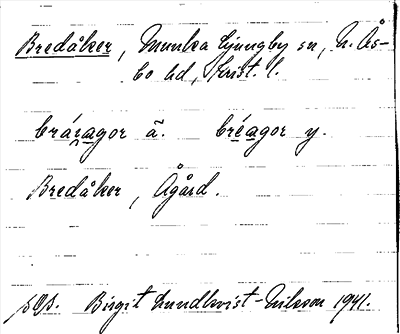 Bredåker, Munka Ljungby sn, N. Ås-
bo hd, Krist. l.
brár̭agor ã. bréagor y.
Bredåker, Ågård.
sOs. Birgit Lundkvist-Nilsson 1941.